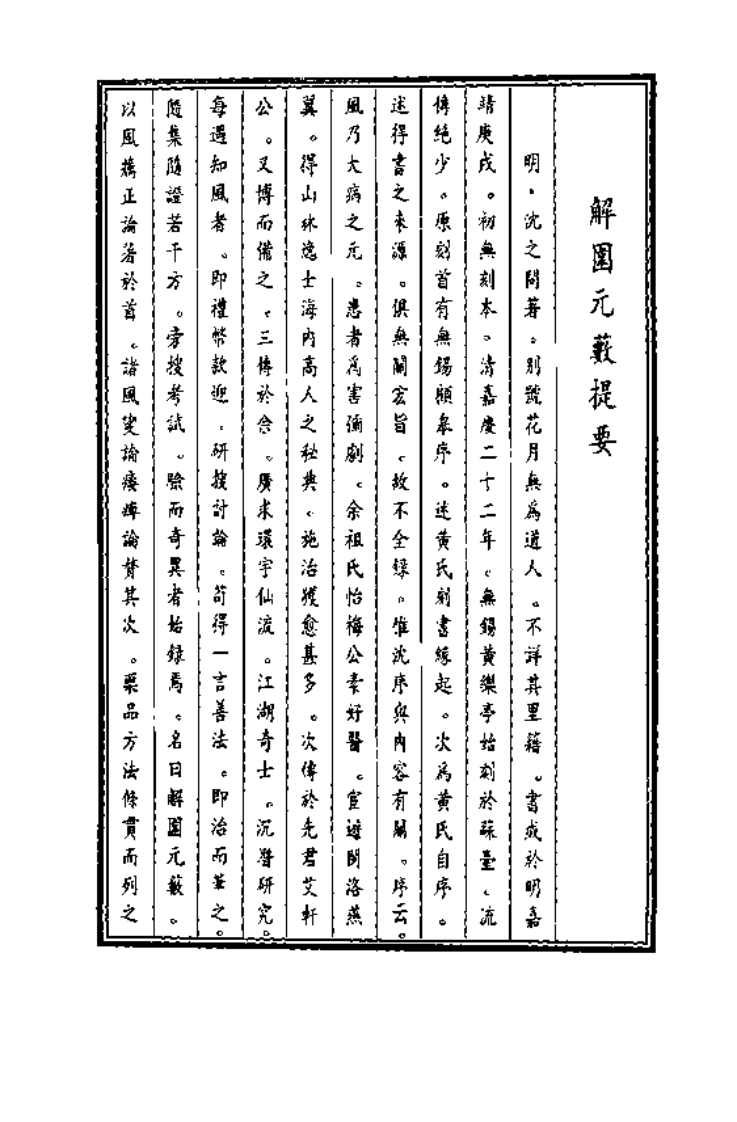 解圍元藪提要
明·沈之問著。別號花月無爲道人。不詳其里籍。書成於明嘉
靖庚戌。初無刻本。清嘉慶二十二年。無錫黃樂亭始刻於蘇臺。流
傳絶少。原刻首有無錫顧皋序。述黃氏刻書緣起。次爲黃氏自序。
述得書之來源。俱無關宏旨。故不全錄。惟沈序與內容有關。序云。
風乃大病之元。患者爲害彌劇。余祖氏怡梅公素好醫。宦遊閩洛燕
冀。得山林逸士海內高人之秘典。施治獲愈甚多。次傳於先君艾軒
公。又博而備之。三傳於余。廣求環宇仙流。江湖奇士。沉潛研究。
每遇知風者。即禮幣款迎。研搜討論。苟得一言善法。即治而筆之。
隨集隨證若干方。旁搜考試。驗而奇異者始錄焉。名曰解圍元藪。
以風癘正論著於首。諸風燮論痿痺論贅其次。藥品方法條貫而列之